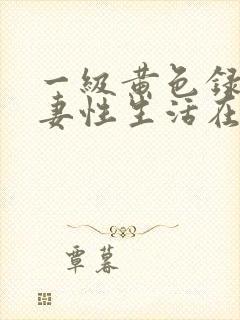 一级黄色録
妻性生活在
覃暮